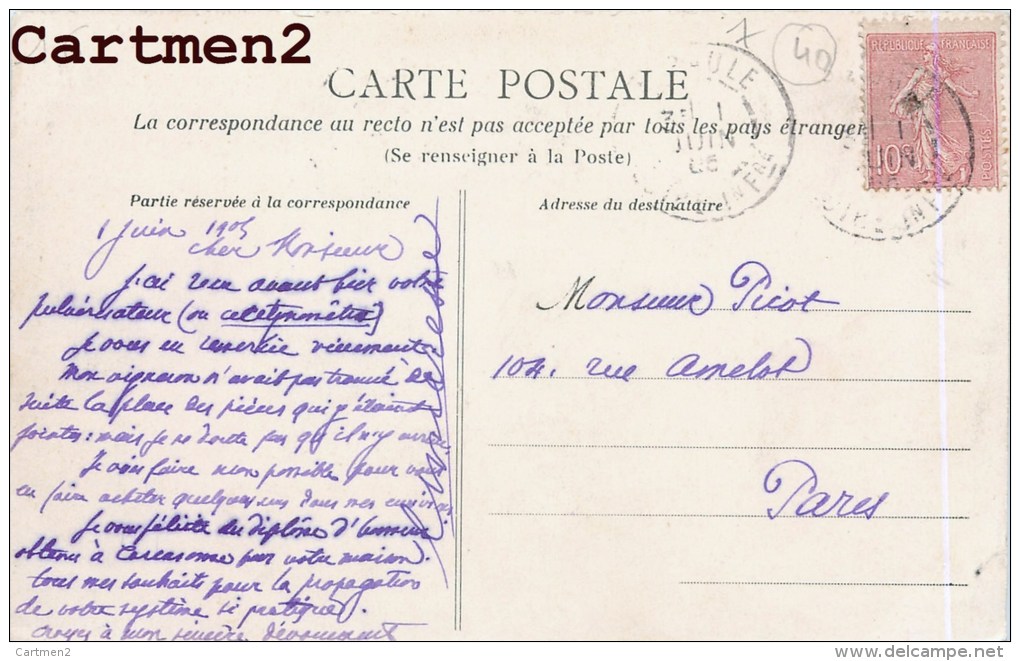 Cartmen2
40
CARTE POSTALE
La correspondance au recto n'est pas acceptée par tous les pays étrangers
(Se renseigner à la Poste)
RÉPUBLIQUE FRANÇAISE
10c
POSTES
JUIN
Partie réservée à la correspondance
Adresse du destinataire
1 Juin 1905
Cher Monsieur
J'ai reçu avant hier votre
pulvérisateur (ou
Je vous en remercie vivement.
Mon vigneron n'avait pas trouvé de
suite la place des pièces qui y étaient
jointes: mais je ne doute pas qu'il n'y arrive
Je vais faire mon possible pour vous
en faire acheter quelques uns dans mes environs
Je vous félicite du diplôme d'honneur
obtenu à Carcasonne par votre maison.
tous mes souhaits pour la propagation
de votre système si pratique.
croyez à mon sincère dévouement
Monsieur Picot
104. rue Amelot
Paris
Cartmen2
delcampe.net